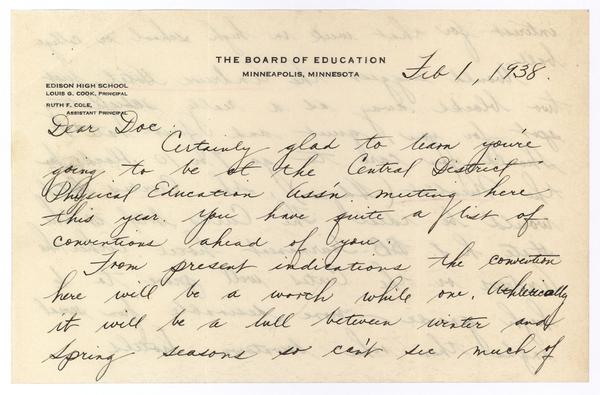 THE BOARD OF EDUCATION
MINNEAPOLIS, MINNESOTA
Feb 1, 1938.
EDISON HIGH SCHOOL
LOUIS G. COOK, PRINCIPAL
RUTH F. COLE,
ASSISTANT PRINCIPAL
Dear Doc:
Certainly glad to learn you're
going to be at the Central District
Physical Education Ass'n. meeting here
this year. You have quite a list of
conventions ahead of you.
From present indications the convention
here will be a worth while one. Athletically
it will be a lull between winter and
Spring seasons so can't see much of